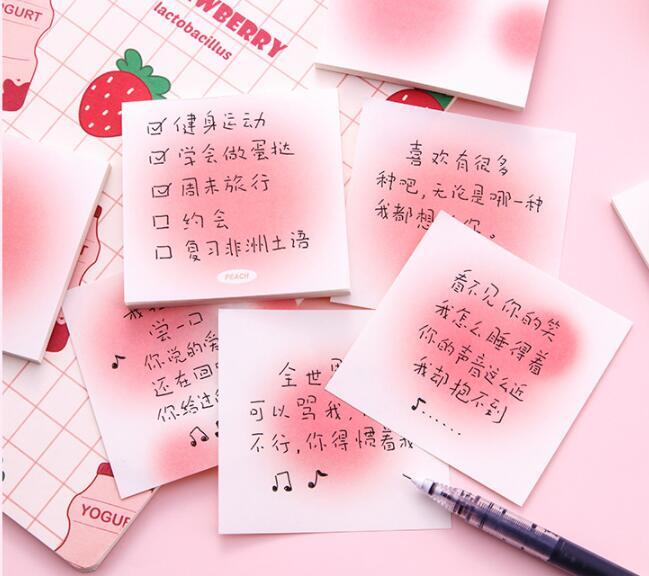 OGURT
STRAWBERRY
lactobacillus
健身运动
学会做蛋挞
周末旅行
约会
复习非洲土语
PEACH
喜欢有很多
种吧，无论是哪一种
我都想
你。
看不见你的笑
我怎么睡得着
你的声音这么近
我却抱不到
♪······
我
尝一口
你说的爱
还在回
你给过
全世界
可以骂我，
不行，你得惯着我
YOGUR